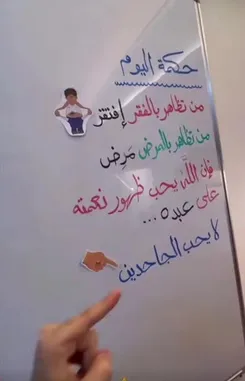 حكمة اليوم
من تظاهر بالفقر إفتقر
من تظاهر بالمرض مَرِض
فإن الله يحب ظهور نعمته
على عبده ...
لا يحب الجاحدين